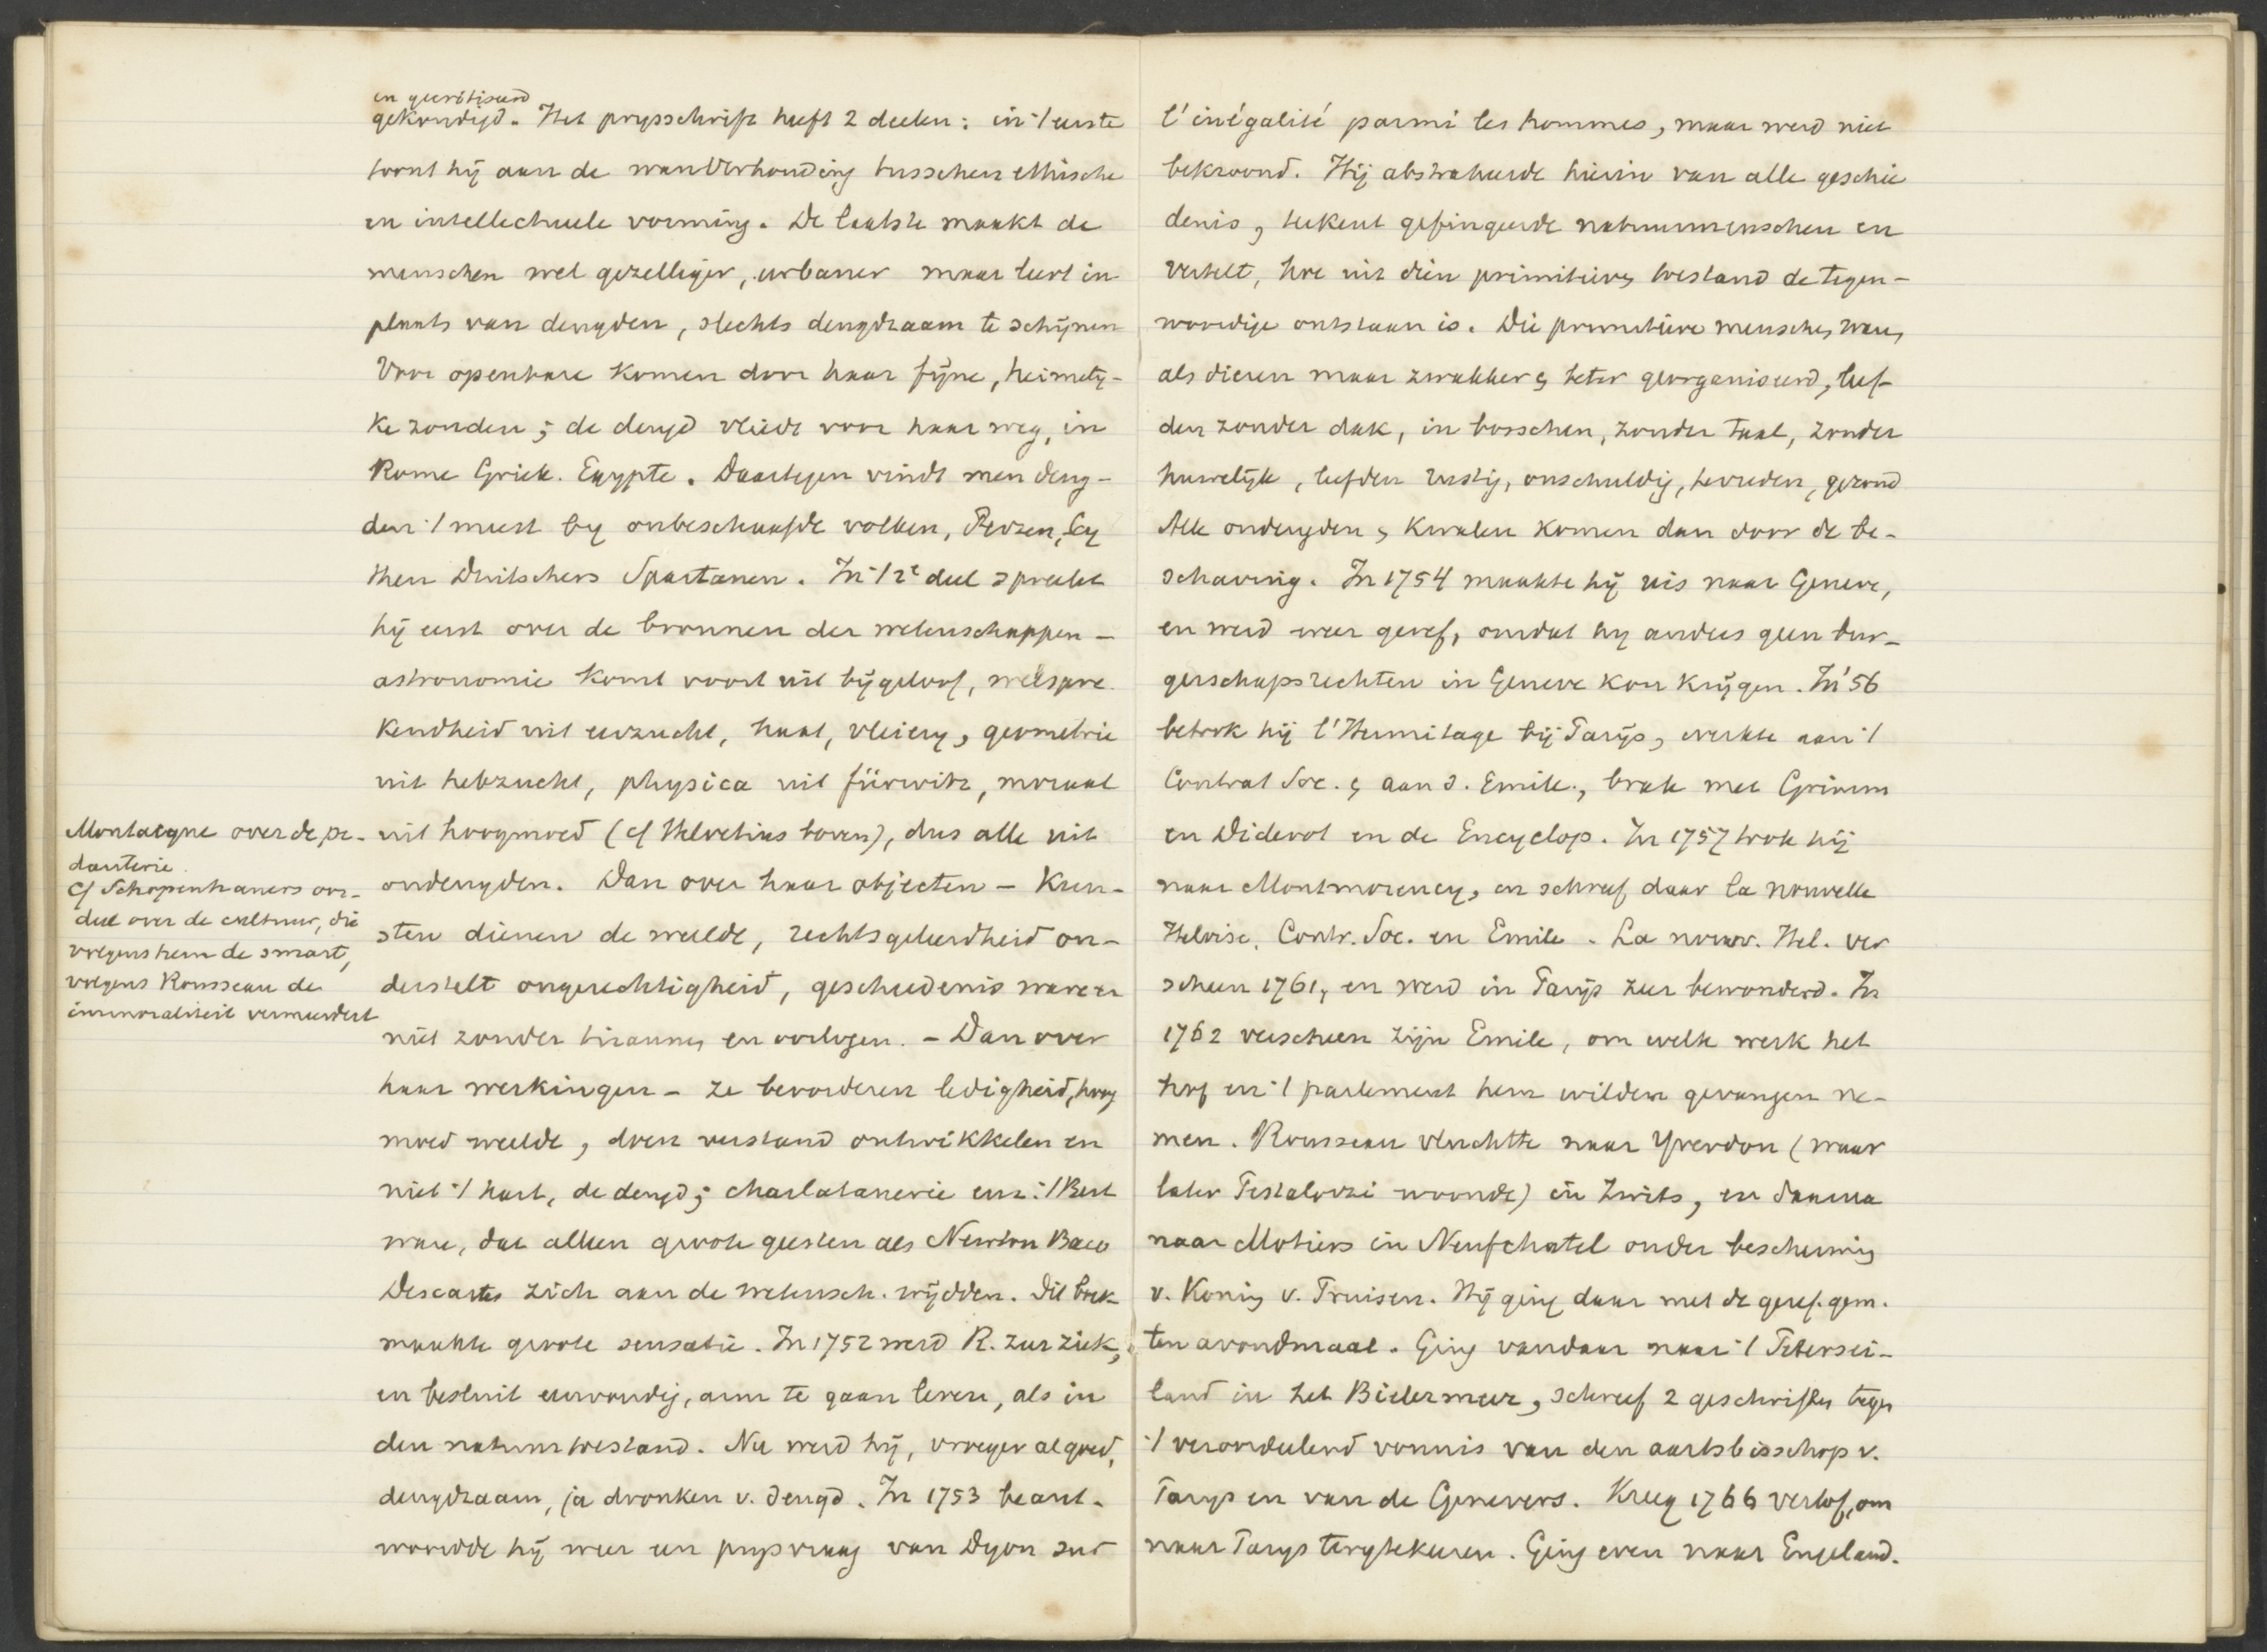 en gecritiseerd
gekondigd. Het prysschrift heeft 2 deelen: in 't eerste
toont hij aan de wanverhouding tusschen ethische
en intellectueele vorming. De laatste maakt de
menschen wel gezelliger, urbaner maar leert in
plaats van deugden, slechts deugdzaam te schijnen
Voor openbare komen door haar fijne, heimely-
ke zonden; de deugd vliedt voor haar weg, in
Rome Griek. Egypte. Daartegen vindt men deug-
den 't meest by onbeschaafde volken, Perzen, Scy
then Duitschers Spartanen. In 't 2e deel spreekt
hij eerst over de bronnen der wetenschappen -
astronomie komt voort uit bijgeloof, welspre
kendheid uit eerzucht, haat, vleiery, geometrie
uit hebzucht, physica uit fürwitz, moraal
uit hoogmoed (cf Helvetius boven), dus alle uit
ondeugden. Dan over haar objecten - Kun-
sten dienen de weelde, rechtsgeleerdheid on-
derstelt ongerechtigheid, geschiedenis ware er
niet zonder tirannen en oorlogen. - Dan over
haar werkingen - ze bevorderen ledigheid, hoog
moed weelde, doen verstand ontwikkelen en
niet 't hart, de deugd; charlatanerie enz. 't Best
ware, dat alleen groote geesten als Newton Baco
Descartes zich aan de wetensch. wijdden. Dit boek
maakte groote sensatie. In 1752 werd R. zeer ziek,
en besluit eenvoudig, arm te gaan leven, als in
den natuurtoestand. Nu werd hij, vroeger al goed,
deugdzaam, ja dronken v. deugd. In 1753 beant-
woordde hij weer een prysvraag van Dyon sur
Montaigne over de pe-
danterie.
cf Schopenhauers oor-
deel over de cultuur, die
volgens hem de smart,
volgens Rousseau de
immoraliteit vermeerdert
l'inégalité parmi les hommes, maar werd niet
bekroond. Hij abstraheerde hierin van alle geschie
denis, teekent gefingeerde natuurmenschen en
vertelt, hoe uit dien primitieven toestand de tegen-
woordige ontstaan is. Die primitieve menschen waren
als dieren maar zwakker en beter georganiseerd, leef-
den zonder dak, in bosschen, zonder taal, zonder
huwelijk, leefden rustig, onschuldig, tevreden, gezond
Alle ondeugden en kwalen komen dan door de be-
schaving. In 1754 maakte hij reis naar Geneve,
en werd weer geref, omdat hy anders geen bur-
gerschapsrechten in Geneve kon krijgen. In '56
betrok hij l'Hermitage bij Parijs, werkte aan 't
Contrat Soc. en aan d. Emile., brak met Grimm
en Diderot en de Encyclop. In 1757 trok hij
naar Montmorency, en schreef daar la nouvelle
Heloise, Contr. Soc. en Emile. La nouv. Hel. ver
scheen 1761, en werd in Parijs zeer bewonderd. In
1762 verscheen zijn Emile, om welk werk het
hof en 't parlement hem wilden gevangen ne-
men. Rousseau vluchtte naar Yverdon (waar
later Pestalozzi woonde) in Zwits, en daarna
naar Motiers in Neufchatel onder bescherming
v. Koning v. Pruisen. Hij ging daar met de geref. gem.
ten avondmaal. Ging vandaar naar 't Petersei-
land in het Bielermeer, schreef 2 geschriften tegen
't veroordeelend vonnis van den aartsbisschop v.
Parys en van de Genevers. Kreeg 1766 verlof, om
naar Parys terugtekeeren. Ging even naar Engeland.